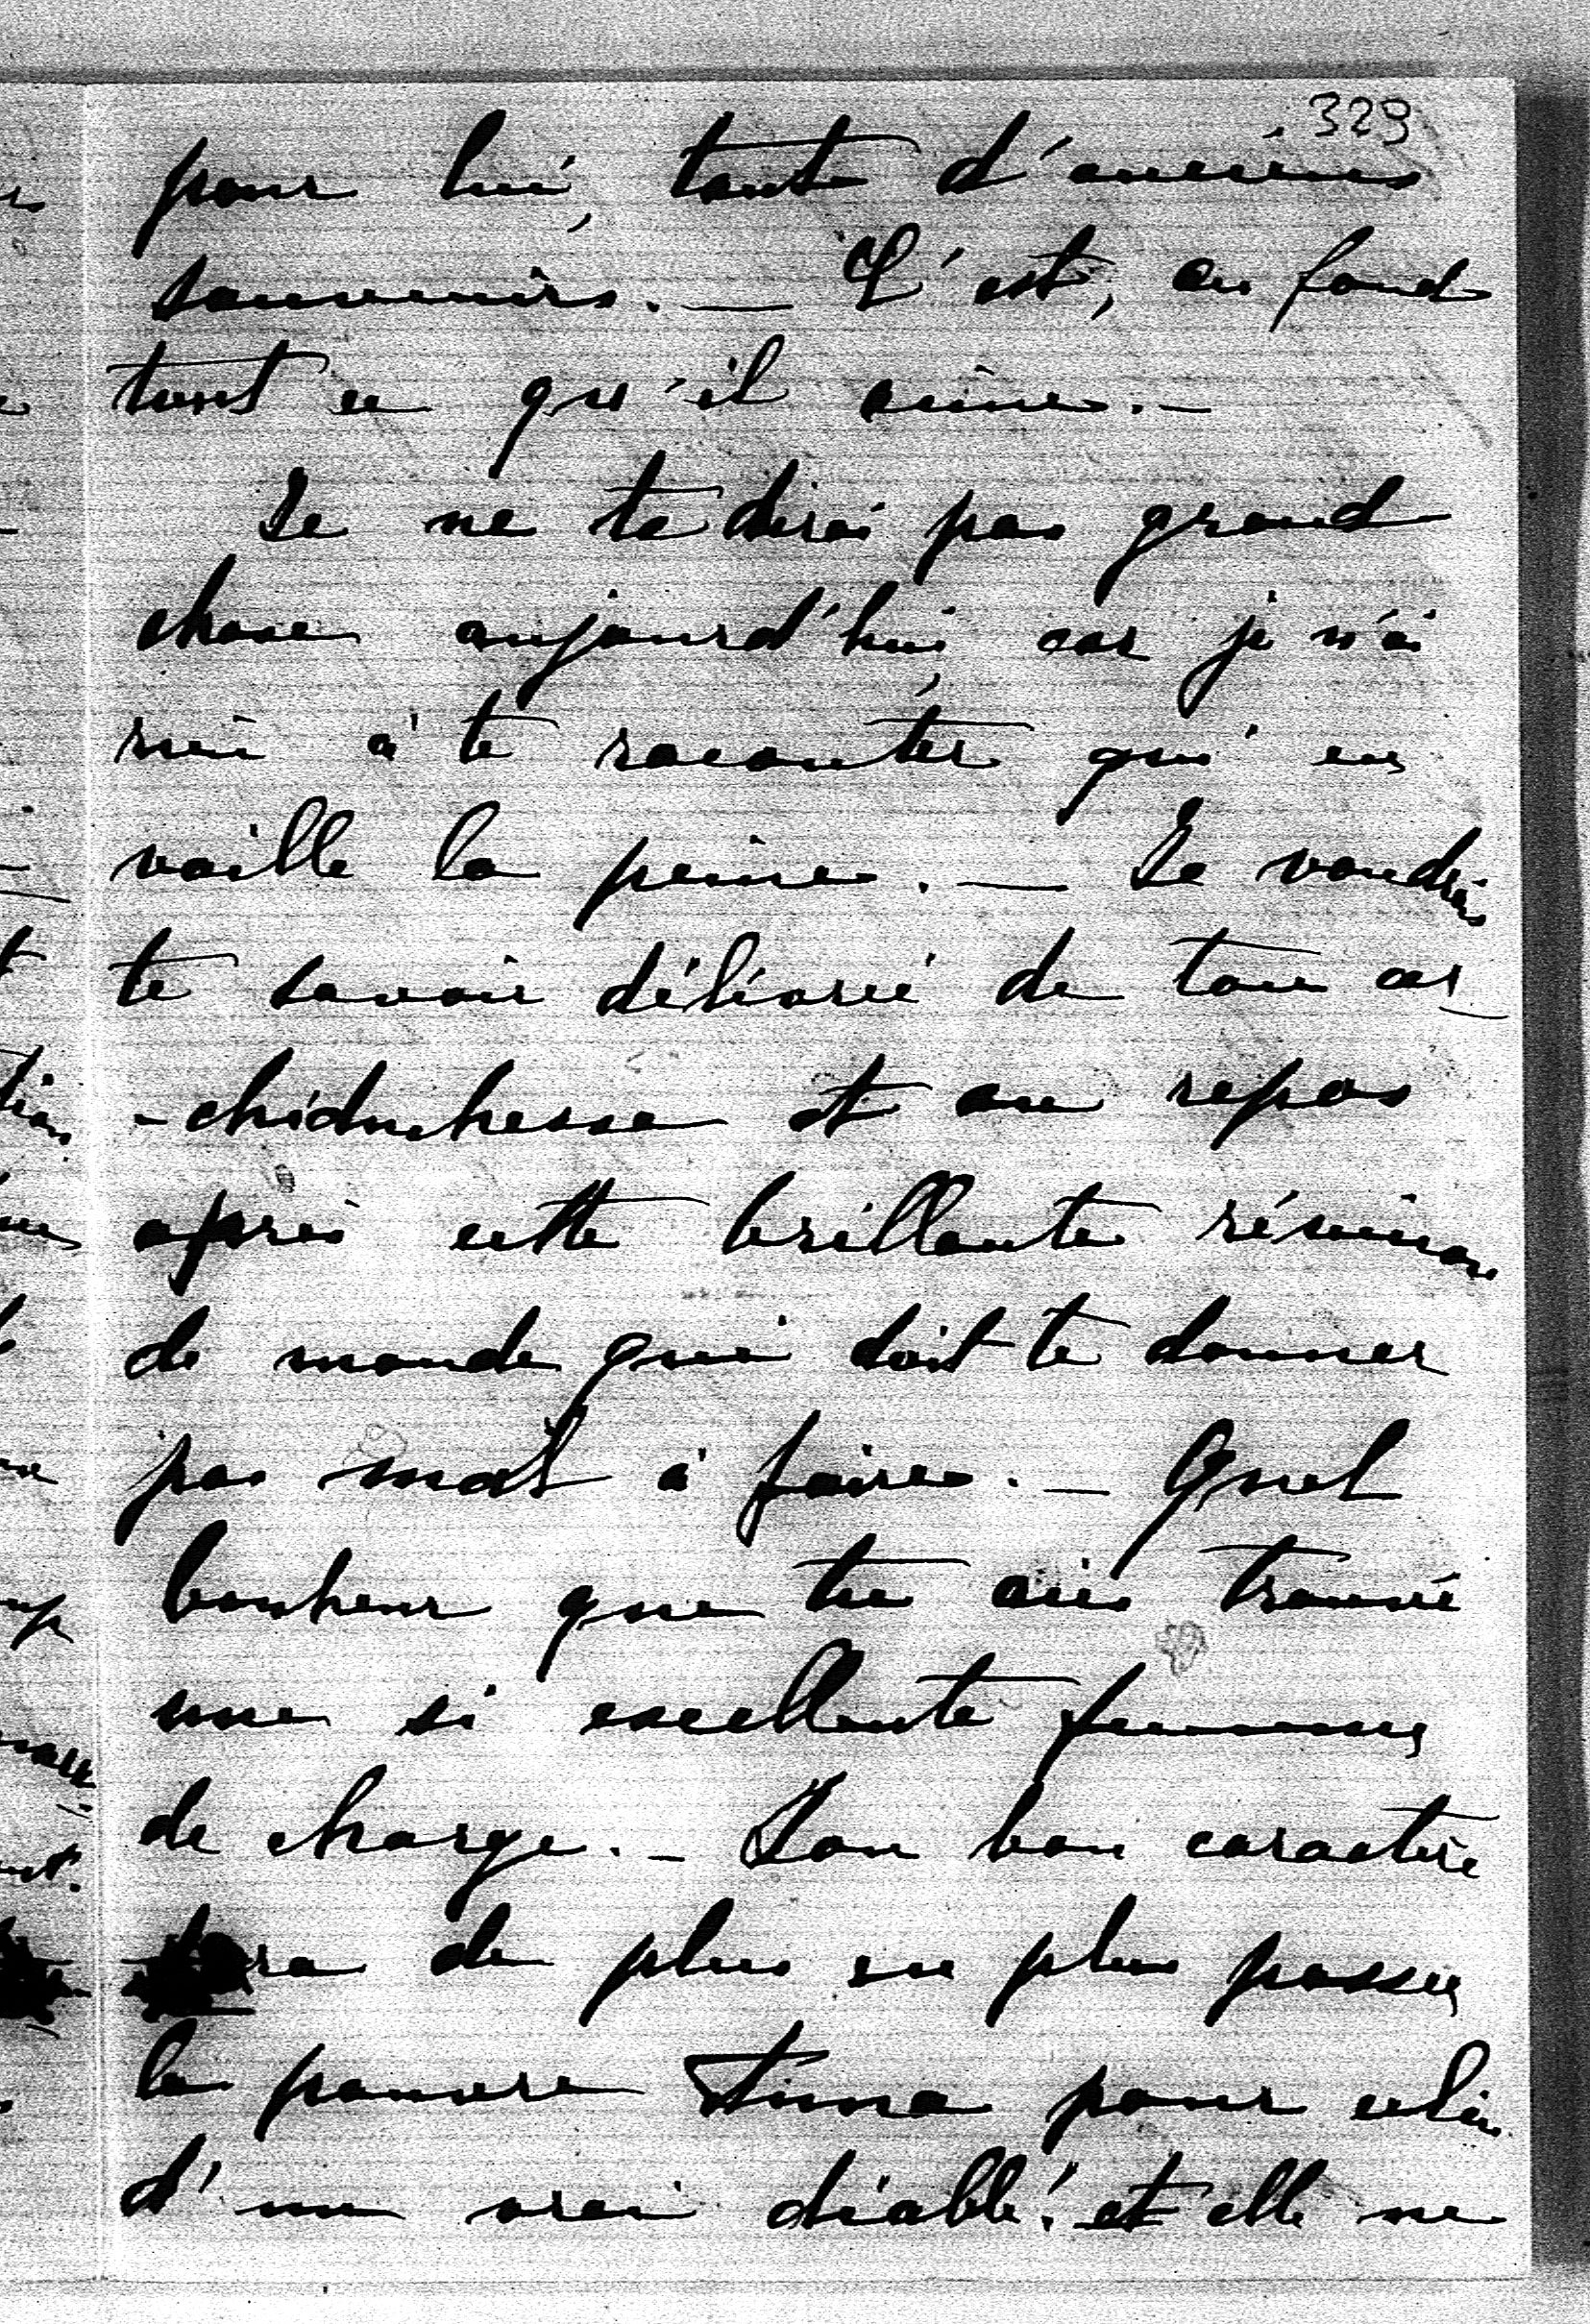 329
pour lui, tant d'anciens
souvenirs. — C'est, au fond
tout ce qu'il aime. —
Je ne te dirai pas grand
chose aujourd'hui, car je n'ai
rien à te raconter qui en
vaille la peine. — Je voudrais
te savoir délivré de ton ar
-chiduchesse et au repos
après cette brillante réunion
de monde qui doit te donner
pas mal à faire. — Quel
bonheur que tu aies trouvé
une si excellente femme
de charge. — Son bon caractère
fera de plus en plus passer
la pauvre Tinna pour celui
d'un vrai diable! et elle ne